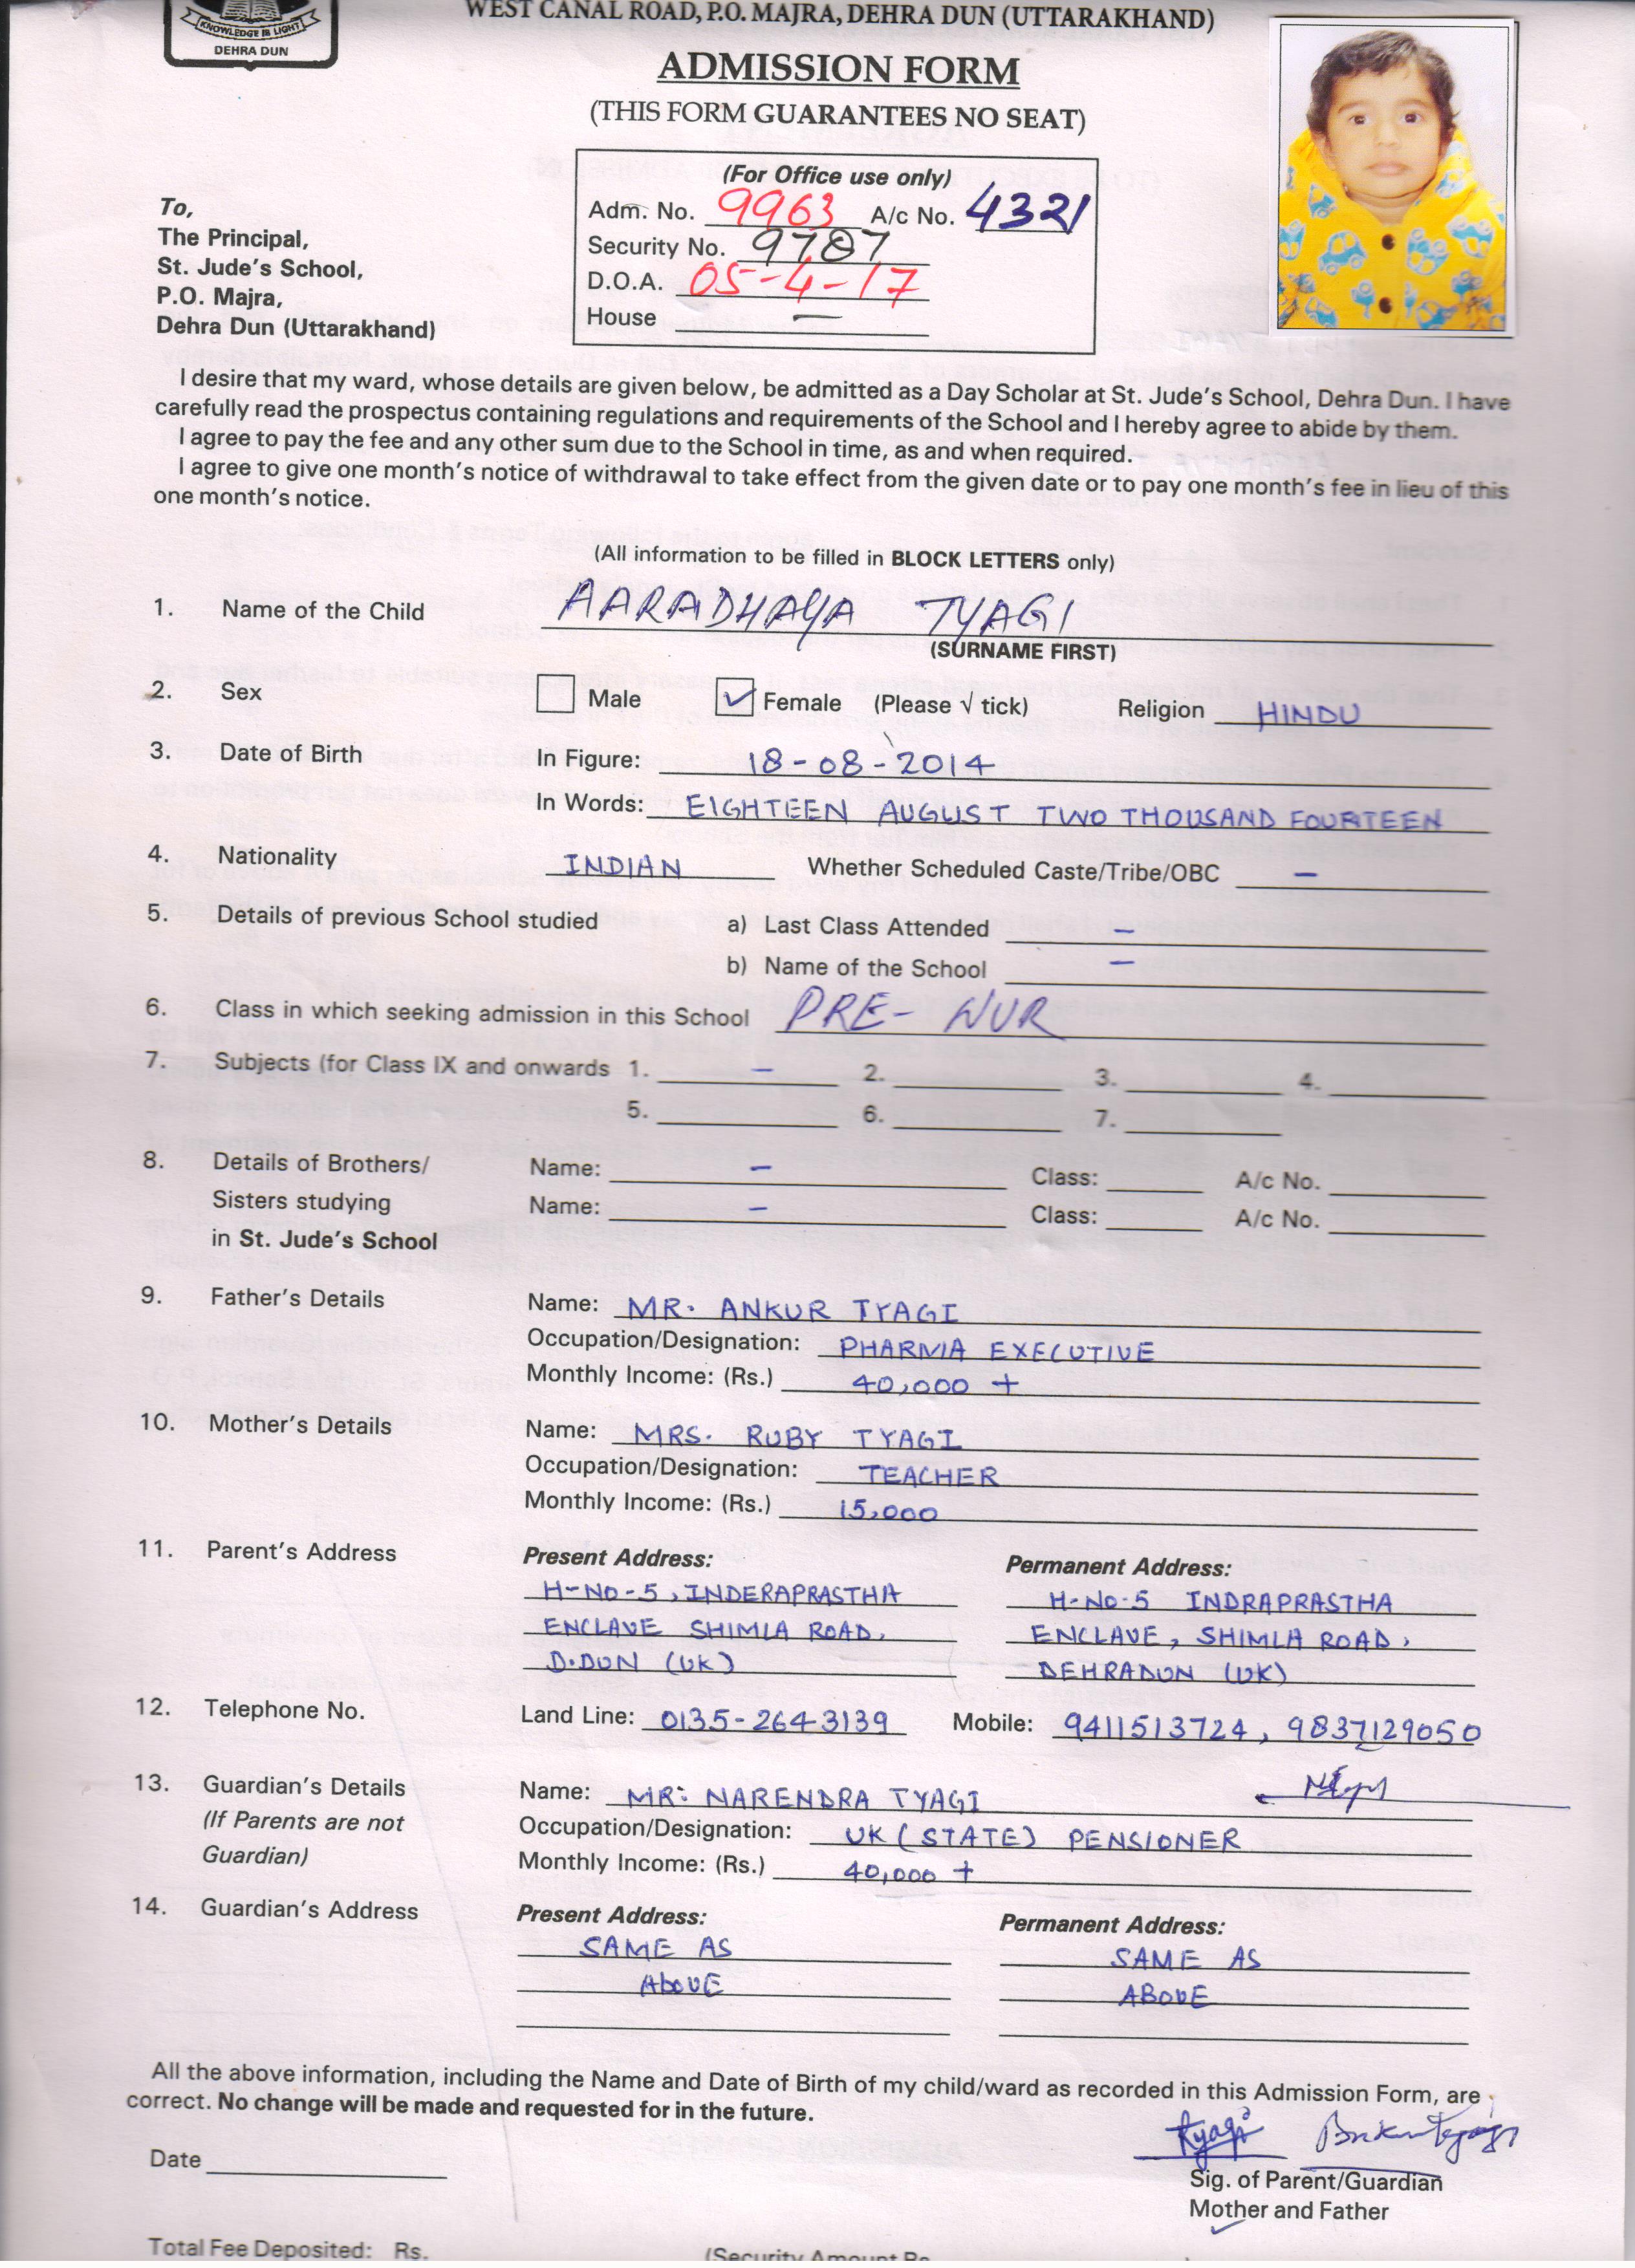 KNOWLEDGE IS LIGHT
DEHRA DUN
WEST CANAL ROAD, P.O. MAJRA, DEHRA DUN (UTTARAKHAND)
ADMISSION FORM
(THIS FORM GUARANTEES NO SEAT)
(For Office use only)
Adm. No. 9963 A/c No. 4321
Security No. 9787
D.O.A. 05-4-17
House —
To,
The Principal,
St. Jude's School,
P.O. Majra,
Dehra Dun (Uttarakhand)
I desire that my ward, whose details are given below, be admitted as a Day Scholar at St. Jude's School, Dehra Dun. I have
carefully read the prospectus containing regulations and requirements of the School and I hereby agree to abide by them.
I agree to pay the fee and any other sum due to the School in time, as and when required.
I agree to give one month's notice of withdrawal to take effect from the given date or to pay one month's fee in lieu of this
one month's notice.
(All information to be filled in BLOCK LETTERS only)
1. Name of the Child AARADHAYA TYAGI
(SURNAME FIRST)
2. Sex Male ✓ Female (Please √ tick) Religion HINDU
3. Date of Birth In Figure: 18-08-2014
In Words: EIGHTEEN AUGUST TWO THOUSAND FOURTEEN
4. Nationality INDIAN Whether Scheduled Caste/Tribe/OBC —
5. Details of previous School studied a) Last Class Attended —
b) Name of the School —
6. Class in which seeking admission in this School PRE- NUR
7. Subjects (for Class IX and onwards 1. — 2. 3. 4.
5. 6. 7.
8. Details of Brothers/ Name: — Class: A/c No.
Sisters studying Name: — Class: A/c No.
in St. Jude's School
9. Father's Details Name: MR. ANKUR TYAGI
Occupation/Designation: PHARMA EXECUTIVE
Monthly Income: (Rs.) 40,000 +
10. Mother's Details Name: MRS. RUBY TYAGI
Occupation/Designation: TEACHER
Monthly Income: (Rs.) 15,000
11. Parent's Address Present Address: Permanent Address:
H-NO-5, INDERAPRASTHA H-NO-5 INDRAPRASTHA
ENCLAVE SHIMLA ROAD, ENCLAVE, SHIMLA ROAD,
D.DUN (UK) DEHRADUN (UK)
12. Telephone No. Land Line: 0135-2643139 Mobile: 9411513724, 9837129050
13. Guardian's Details Name: MR: NARENDRA TYAGI
(If Parents are not Occupation/Designation: UK (STATE) PENSIONER
Guardian) Monthly Income: (Rs.) 40,000 +
14. Guardian's Address Present Address: Permanent Address:
SAME AS SAME AS
AbOVE ABOVE
All the above information, including the Name and Date of Birth of my child/ward as recorded in this Admission Form, are
correct. No change will be made and requested for in the future.
Tyagi
Date
Sig. of Parent/Guardian
Mother and Father
Total Fee Deposited: Rs. (Security Amount Rs.